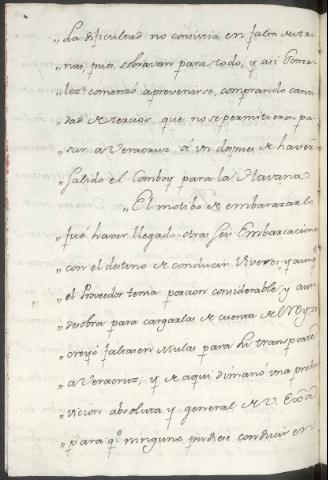 "La dificultad no consistia en falta de tri-
"nas, pues sobravan para todo, y asi Gonza-
"lez comenzó a prevenirse, comprando canti-
"dad de tercios, que no se permitieron pa-
"sar a Veracruz, aún despues de haver
"salido el Comboy para la Havana.
"El motibo de embarazarlo
"fué haver llegado otras seis Embarcaciones
"con el destino de conducir Viveres; y aunq.
"el Proveedor tenia porcion considerable, y aun
"de sobra para cargarlas de cuenta del Rey se
"creyó faltasen Mulas para su transporte
"a Veracruz; y de aqui dimanó una prohi-
"vicion absoluta y general de V. Exa
"para qe. ninguno pudiese conducir en